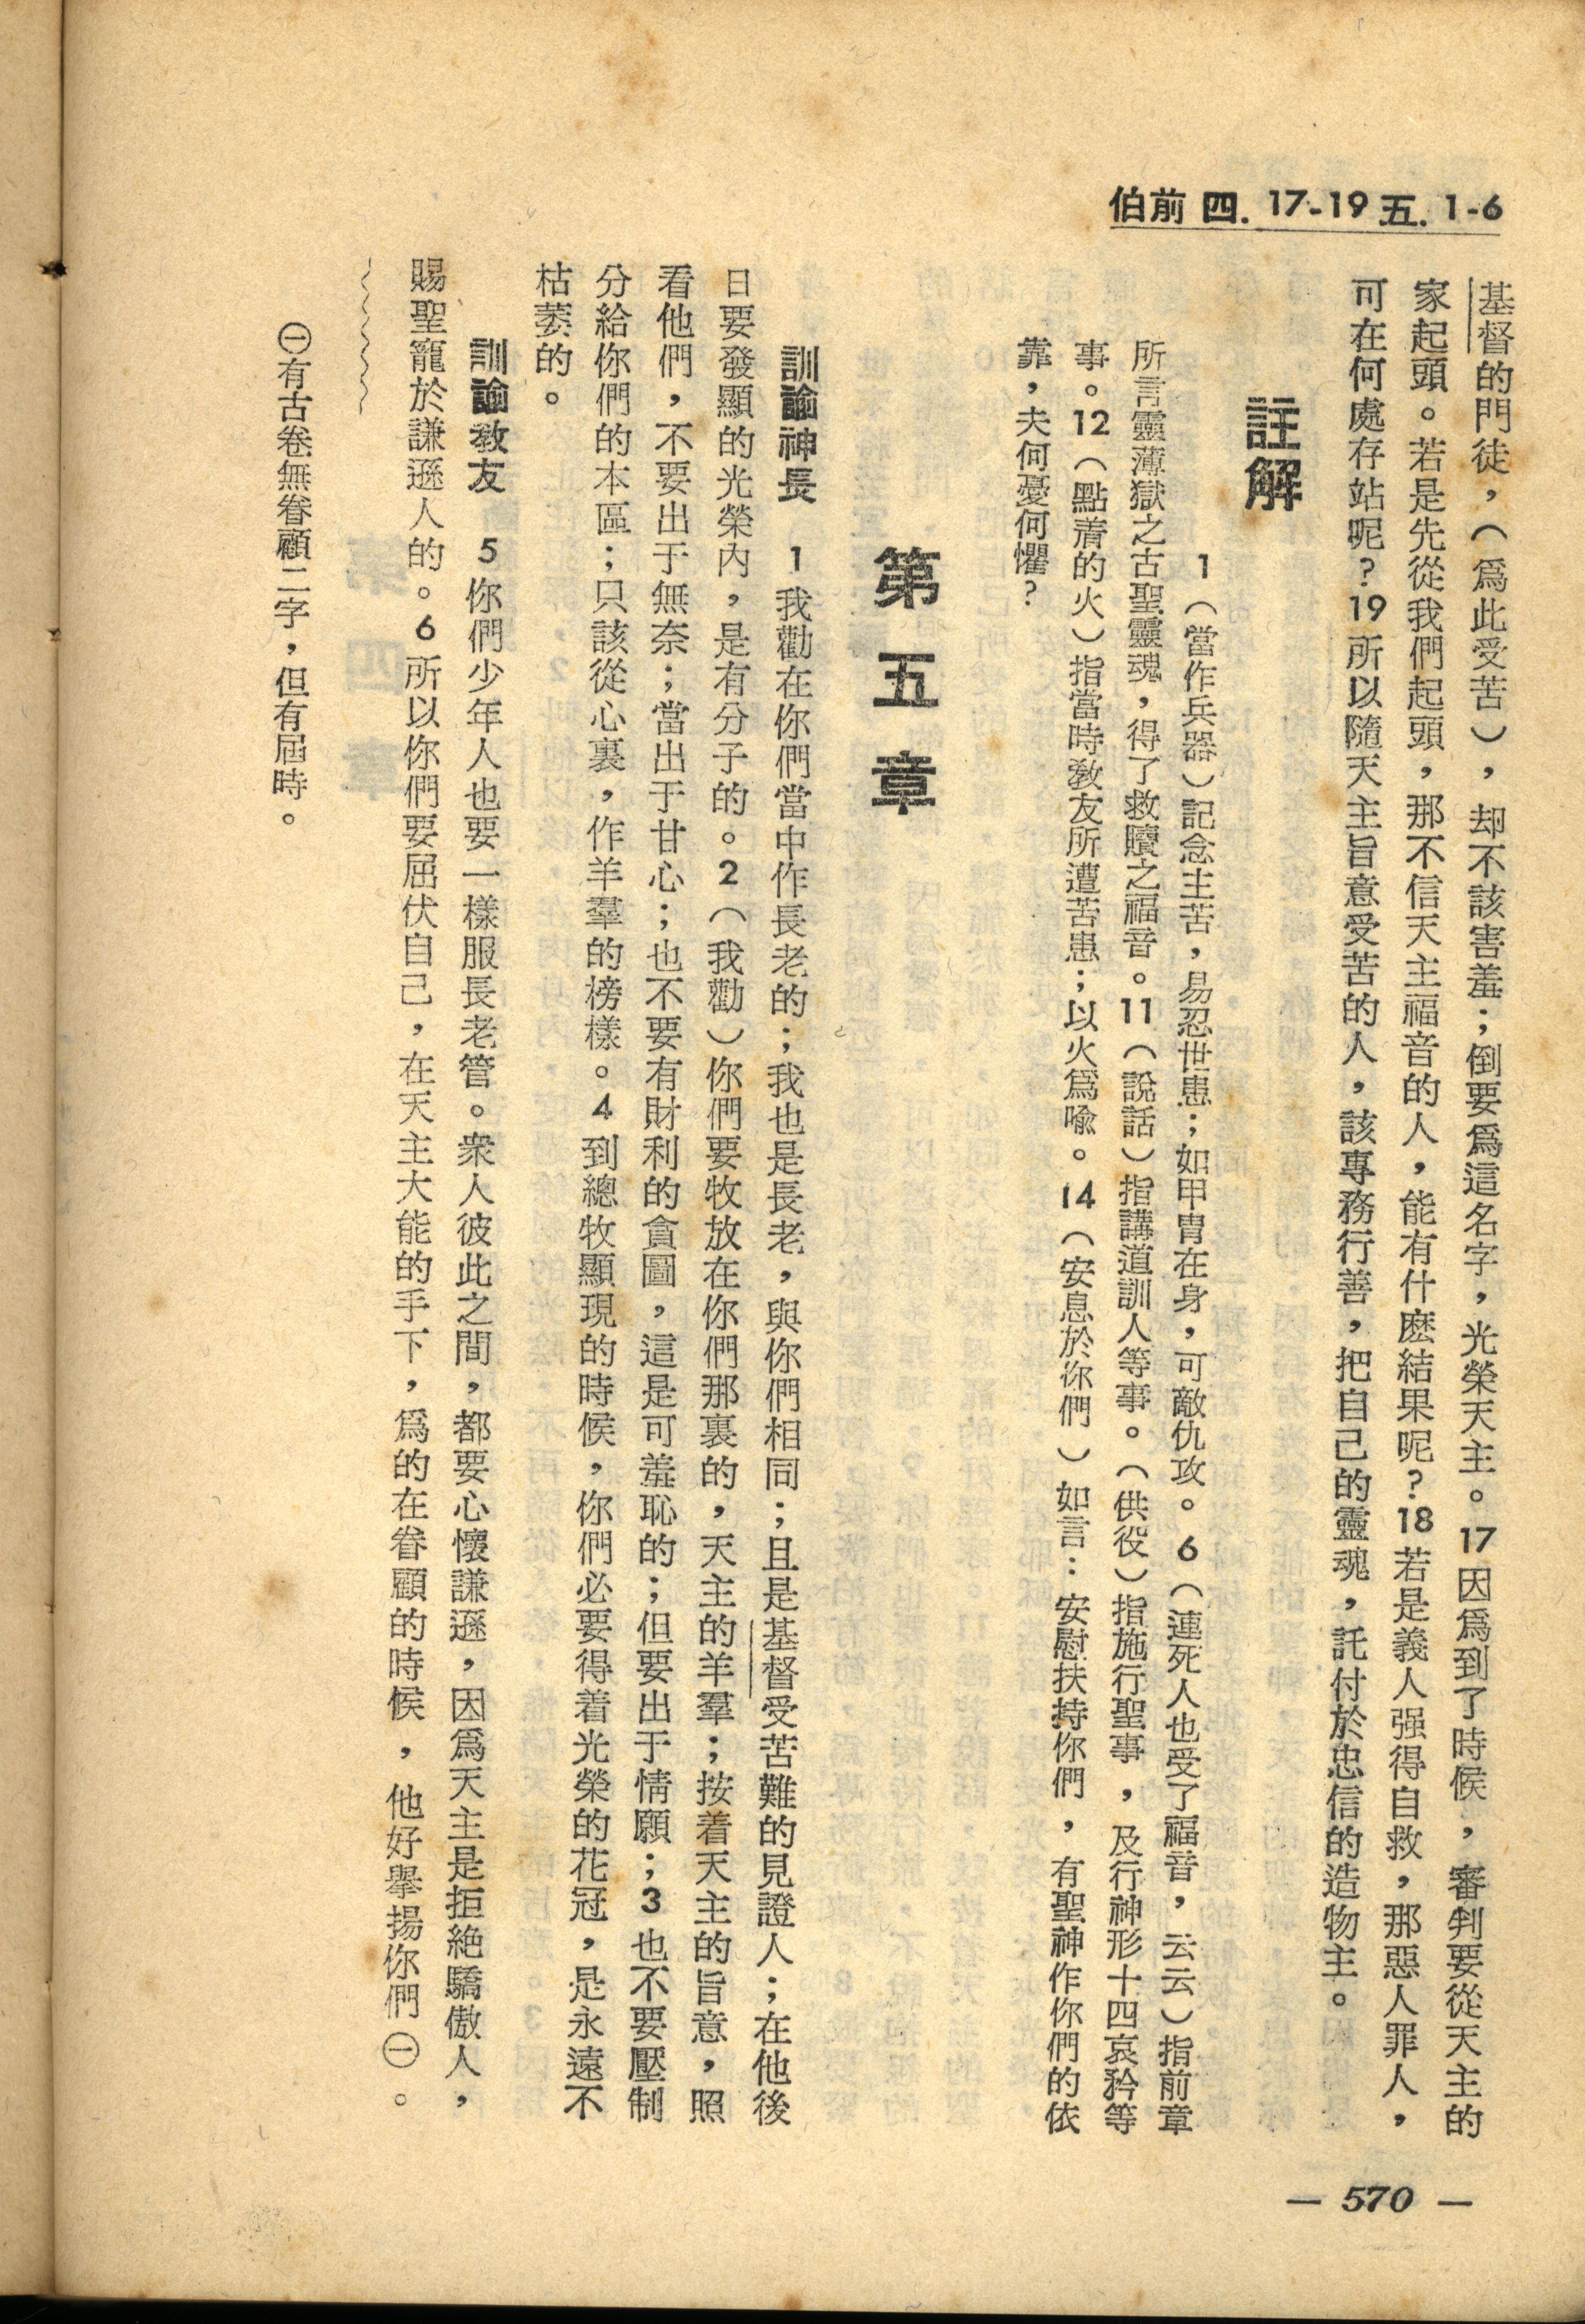 伯前 四. 17-19 五. 1-6
基督的門徒，（爲此受苦），却不該害羞；倒要爲這名字，光榮天主。17因爲到了時候，審判要從天主的
家起頭。若是先從我們起頭，那不信天主福音的人，能有什麽結果呢？18若是義人强得自救，那惡人罪人，
可在何處存站呢？19所以隨天主旨意受苦的人，該專務行善，把自己的靈魂，託付於忠信的造物主。
註解
1（當作兵器）記念主苦，易忍世患；如甲胄在身，可敵仇攻。6（連死人也受了福音，云云）指前章
所言靈薄獄之古聖靈魂，得了救贖之福音。11（說話）指講道訓人等事。（供役）指施行聖事，及行神形十四哀矜等
事。12（點着的火）指當時敎友所遭苦患；以火爲喩。14（安息於你們）如言：安慰扶持你們，有聖神作你們的依
靠，夫何憂何懼？
第五章
訓諭神長　1我勸在你們當中作長老的；我也是長老，與你們相同；且是基督受苦難的見證人；在他後
日要發顯的光榮內，是有分子的。2（我勸）你們要牧放在你們那裏的，天主的羊羣；按着天主的旨意，照
看他們，不要出于無奈；當出于甘心；也不要有財利的貪圖，這是可羞恥的；但要出于情願；3也不要壓制
分給你們的本區；只該從心裏，作羊羣的榜樣。4到總牧顯現的時候，你們必要得着光榮的花冠，是永遠不
枯萎的。
訓諭敎友　5你們少年人也要一樣服長老管。衆人彼此之間，都要心懷謙遜，因爲天主是拒絶驕傲人，
賜聖寵於謙遜人的。6所以你們要屈伏自己，在天主大能的手下，爲的在眷顧的時候，他好擧揚你們㊀。
㊀有古卷無眷顧二字，但有屆時。
— 570 —